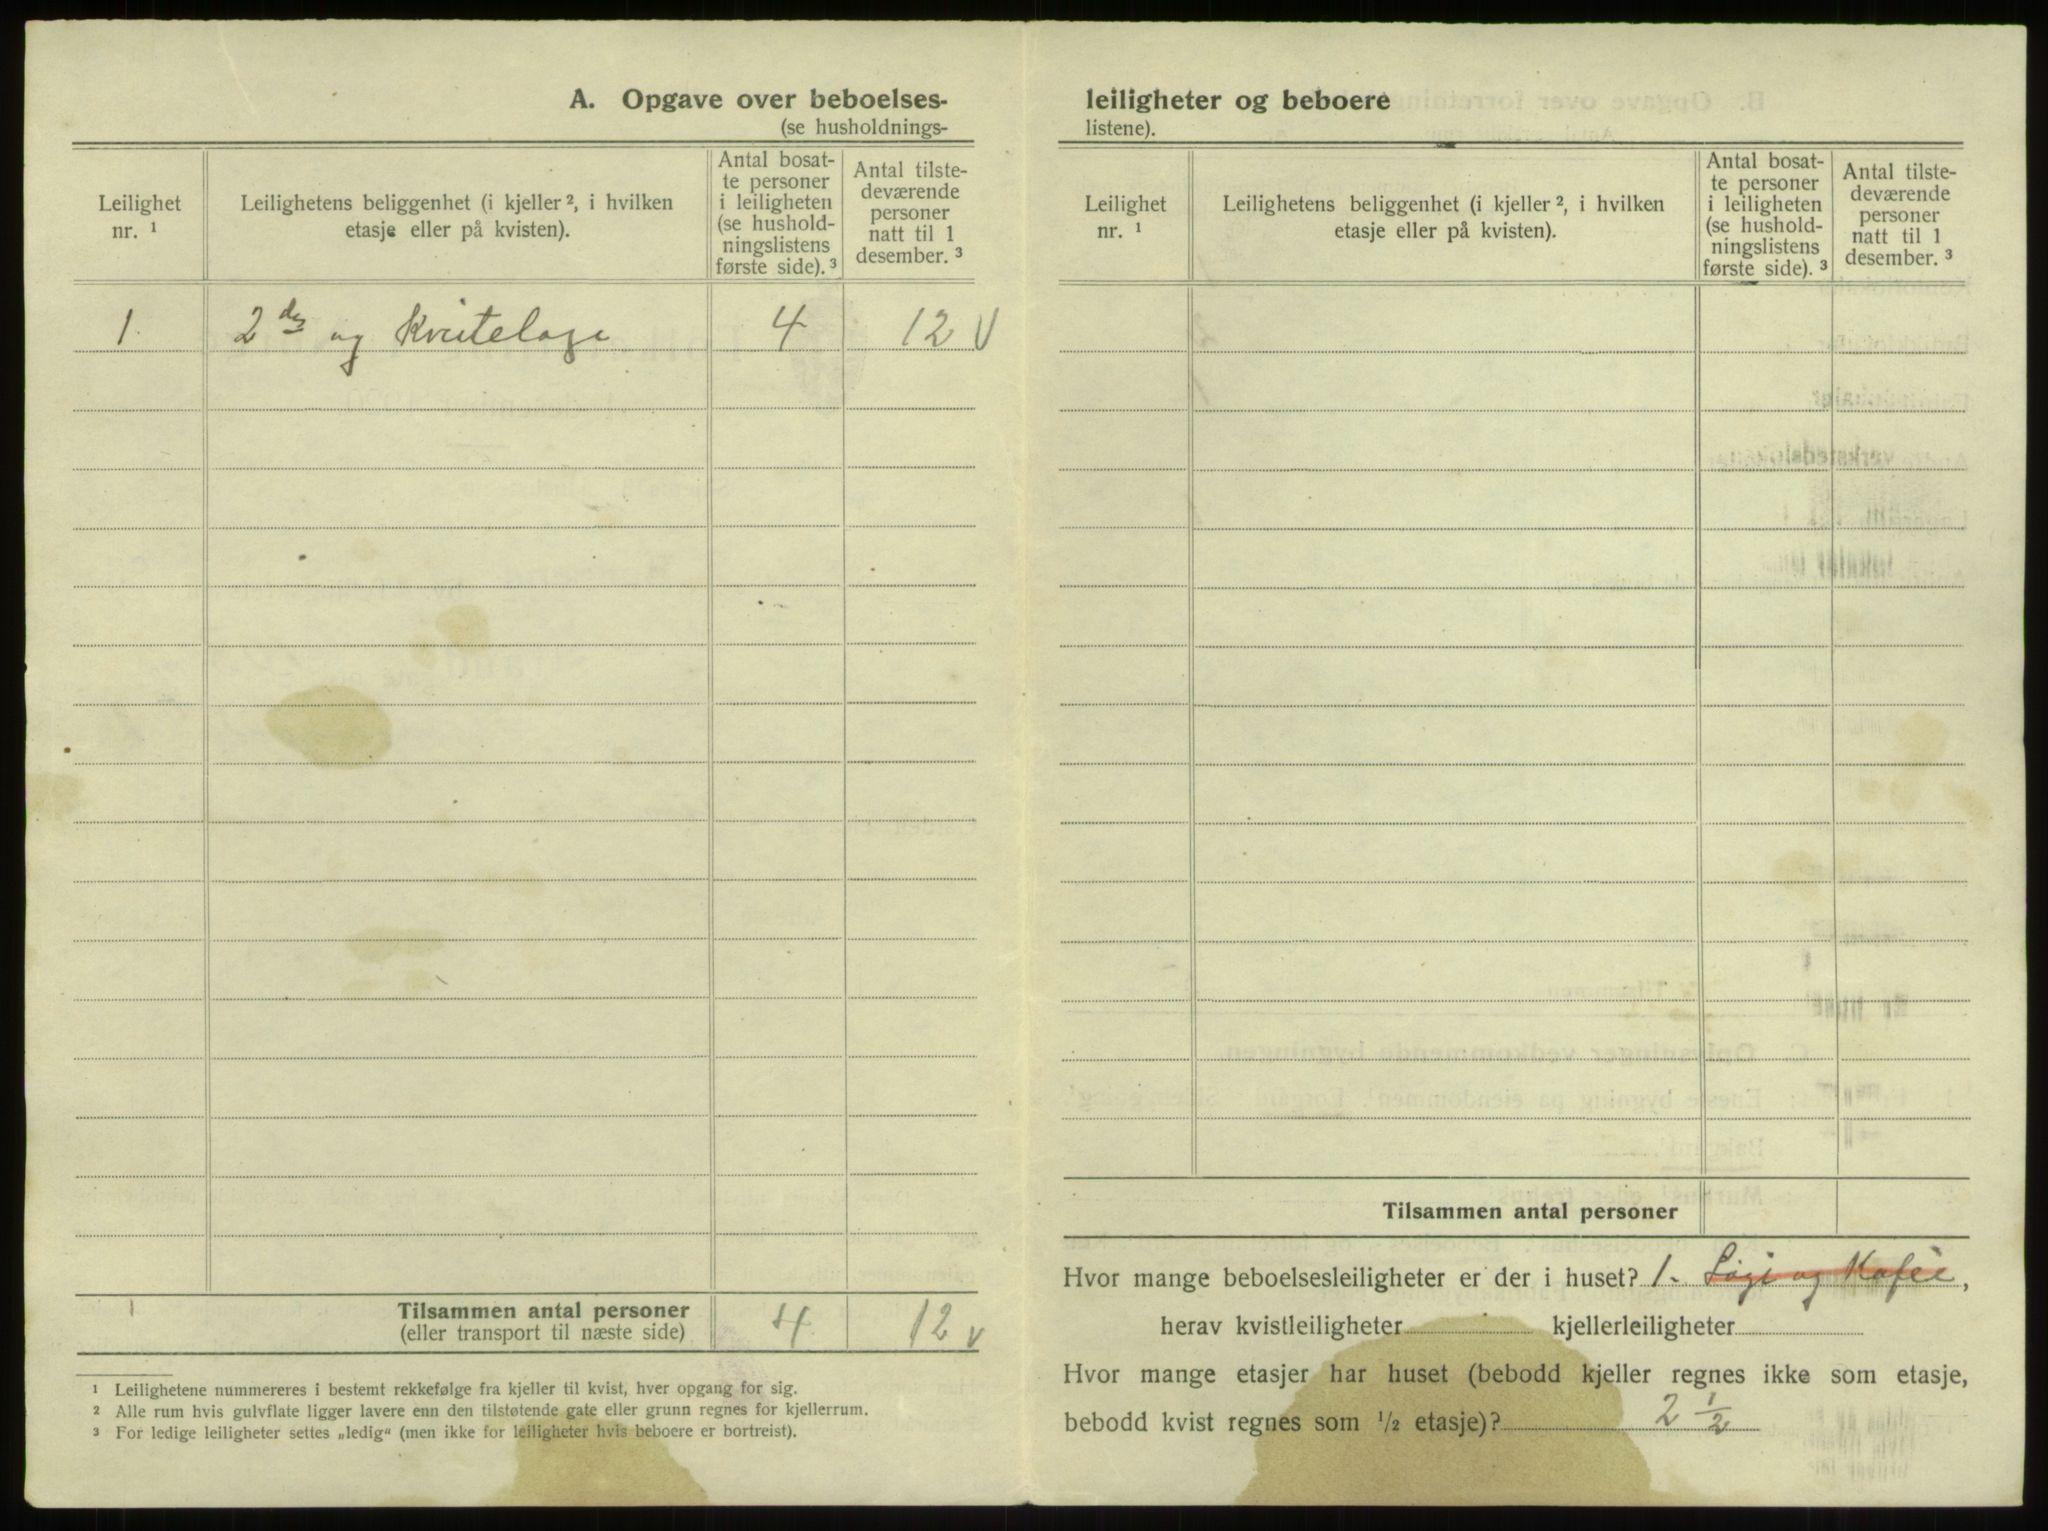 A. Opgave over beboelses-
(se husholdnings-
Leilighet
nr. ¹
Leilighetens beliggenhet (i kjeller ², i hvilken
etasje eller på kvisten).
Antal bosat-
te personer
i leiligheten
(se hushold-
ningslistens
første side). ³
Antal tilste-
deværende
personer
natt til 1
desember. ³
1. 2 den og Kvistelage 4 12 V
Tilsammen antal personer 4 12 v
(eller transport til næste side)
¹ Leilighetene nummereres i bestemt rekkefølge fra kjeller til kvist, hver opgang for sig.
² Alle rum hvis gulvflate ligger lavere enn den tilstøtende gate eller grunn regnes for kjellerrum.
³ For ledige leiligheter settes „ledig“ (men ikke for leiligheter hvis beboere er bortreist).
leiligheter og beboere
listene).
Leilighet
nr. ¹
Leilighetens beliggenhet (i kjeller ², i hvilken
etasje eller på kvisten).
Antal bosat-
te personer
i leiligheten
(se hushold-
ningslistens
første side). ³
Antal tilste-
deværende
personer
natt til 1
desember. ³
Tilsammen antal personer
Hvor mange beboelsesleiligheter er der i huset? 1. Losji og Kafee,
herav kvistleiligheter kjellerleiligheter
Hvor mange etasjer har huset (bebodd kjeller regnes ikke som etasje,
bebodd kvist regnes som ½ etasje)? 2 ½